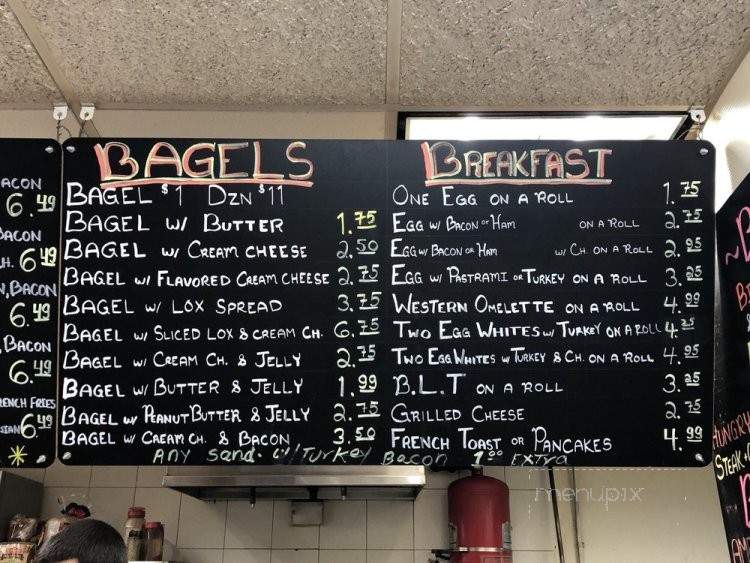 ACON
6.49
BACON
H. 6.49
W, BACON
6.49
, BACON
6.49
ENCH FRIES
6.49
BAGELS
BAGEL $1 DZN $11
BAGEL W/ BUTTER 1.75
BAGEL W/ CREAM CHEESE 2.50
BAGEL W/ FLAVORED CREAM CHEESE 2.75
BAGEL W/ LOX SPREAD 3.75
BAGEL W/ SLICED LOX & CREAM CH. 6.75
BAGEL W/ CREAM CH. & JELLY 2.75
BAGEL W/ BUTTER & JELLY 1.99
BAGEL W/ PEANUT BUTTER & JELLY 2.75
BAGEL W/ CREAM CH. & BACON 3.50
BREAKFAST
ONE EGG ON A ROLL 1.75
EGG W/ BACON OR HAM ON A ROLL 2.75
EGG W/ BACON OR HAM W/ CH. ON A ROLL 2.95
EGG W/ PASTRAMI OR TURKEY ON A ROLL 3.25
WESTERN OMELETTE ON A ROLL 4.99
TWO EGG WHITES W/ TURKEY ON A ROLL 4.25
TWO EGG WHITES W/ TURKEY & CH. ON A ROLL 4.95
B.L.T ON A ROLL 3.25
GRILLED CHEESE 2.75
FRENCH TOAST OR PANCAKES 4.99
ANY SAND. W/ TURKEY BACON 1.00 EXTRA
HUNGRY
STEAK
menupix